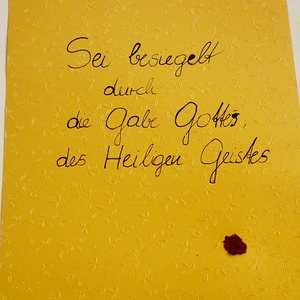 Sei besiegelt
durch
die Gabe Gottes,
des Heiligen Geistes